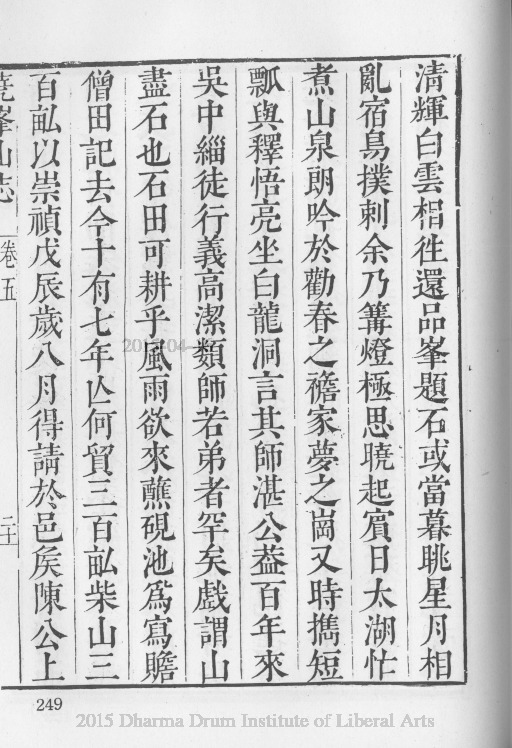 清輝白雲相徃還品峯題石或當暮眺星月相
亂宿鳥撲刺余乃篝燈極思曉起賓日太湖忙
煮山泉朗吟於勸春之簷家夢之崗又時擕短
瓢與釋悟亮坐白龍洞言其師湛公葢百年來
吳中緇徒行義高潔類師若弟者罕矣戲謂山
盡石也石田可耕乎風雨欲來蘸硯池爲寫贍
僧田記去今十有七年亾何貿三百畝柴山三
百畝以崇禎戊辰歲八月得請於邑矦陳公上
堯峯山志 卷五 二十
249
2015 Dharma Drum Institute of Liberal Arts